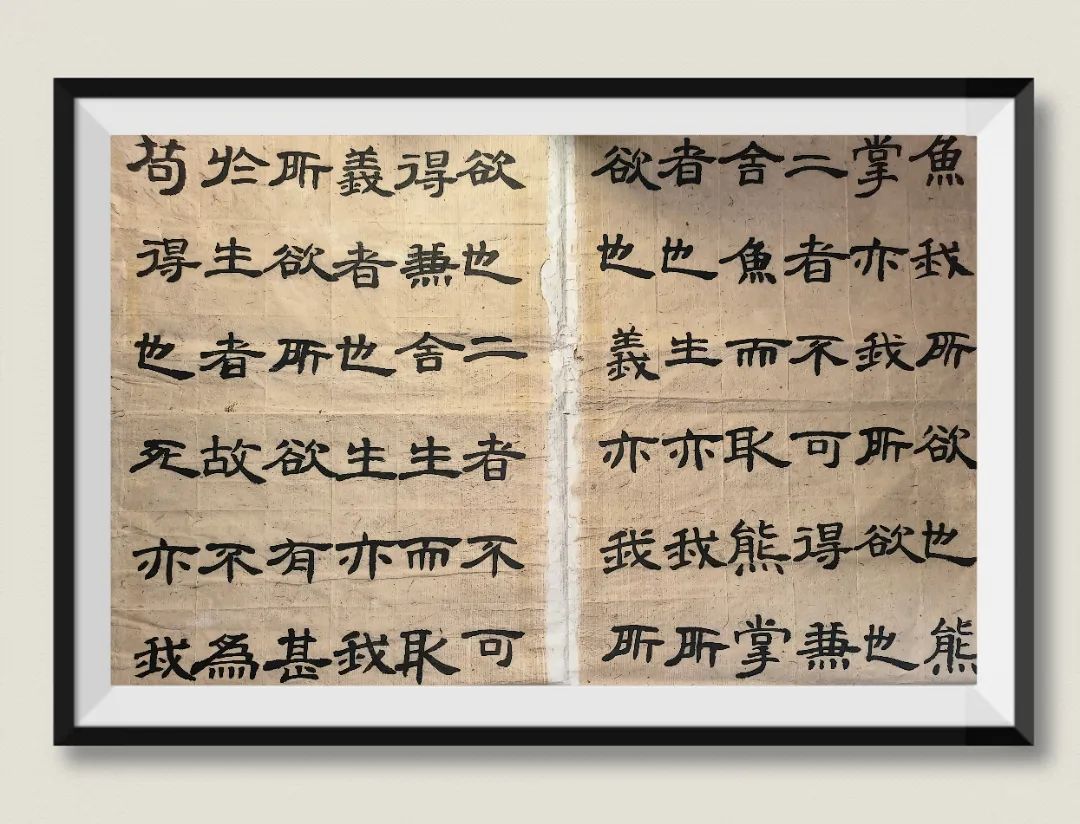 魚我所欲也熊
掌亦我所欲也
二者不可得兼
舍魚而取熊掌
者也生亦我所
欲也義亦我所
欲也二者不可
得兼舍生而取
義者也生亦我
所欲所欲有甚
於生者故不為
苟得也死亦我